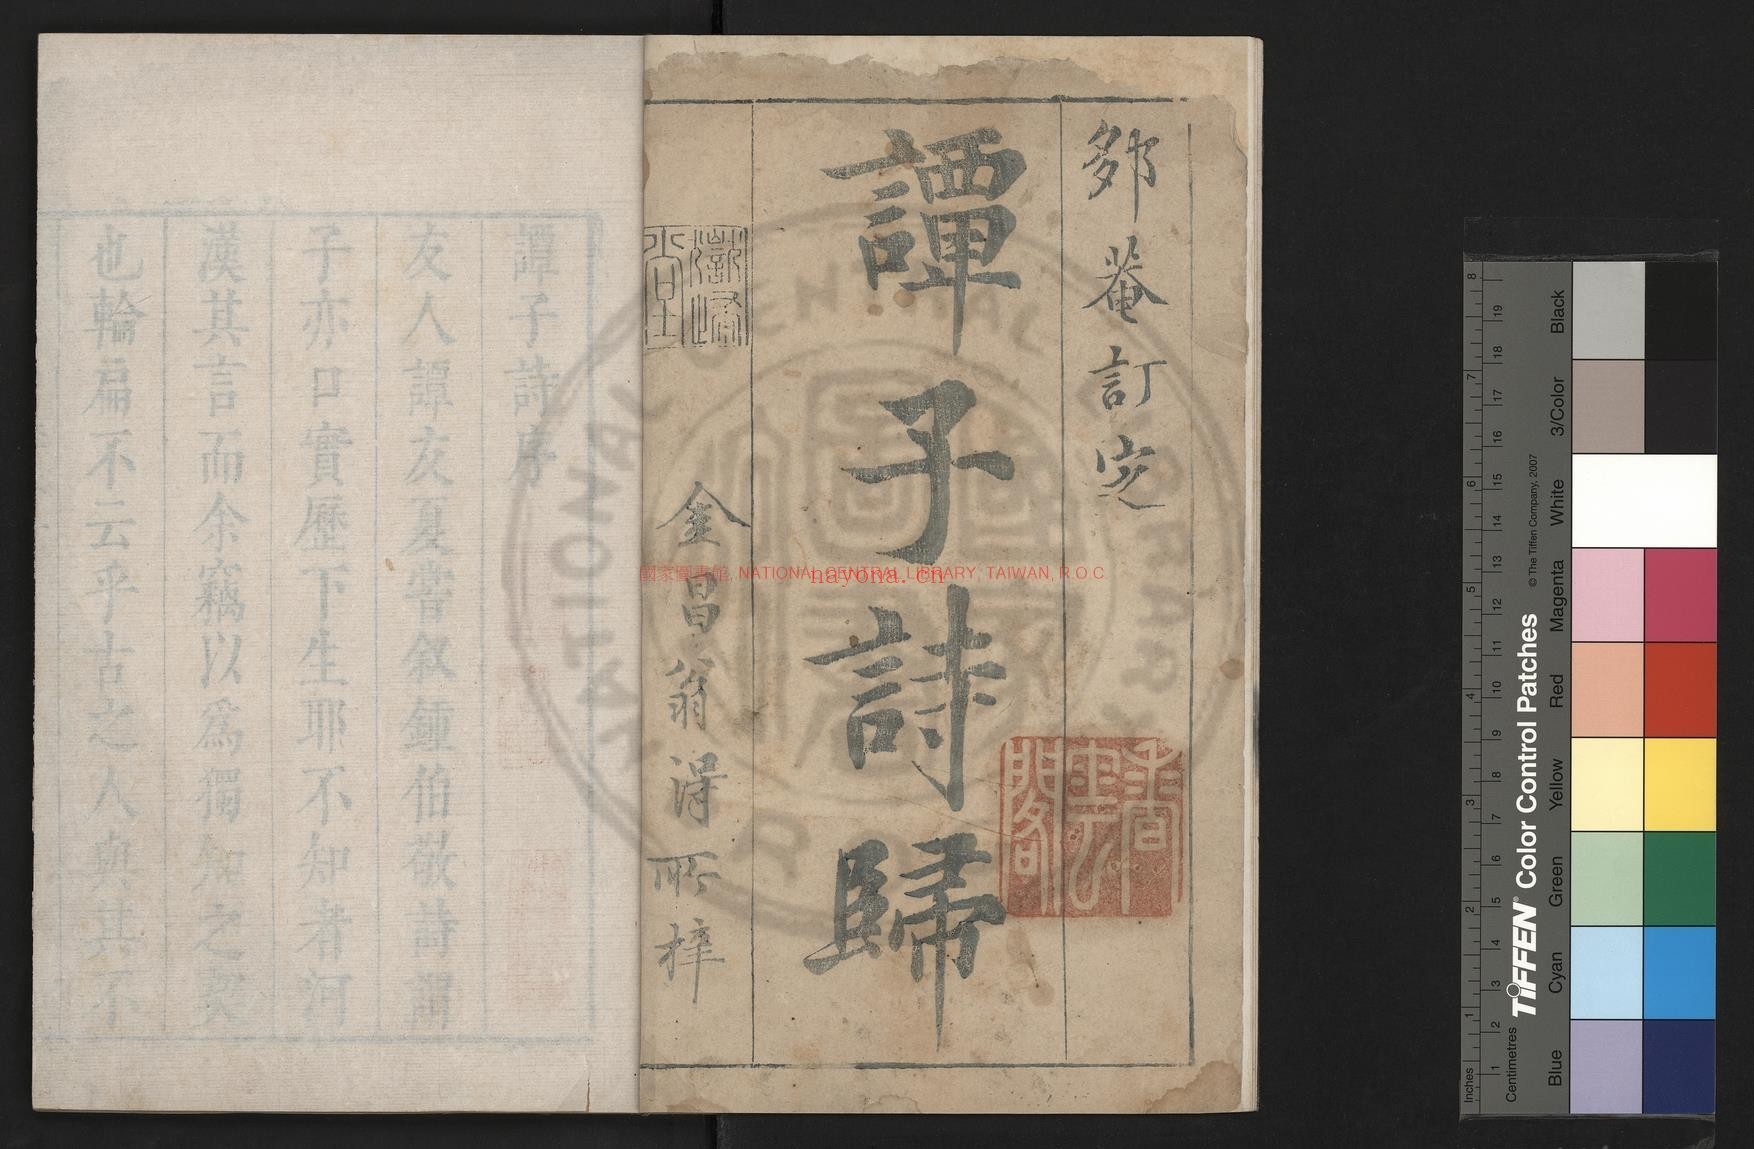 邜菴訂定
譚子詩歸
金昌翁得所梓
譚子詩序
友人譚友夏甞叙鍾伯敬詩謂
子亦口實歷下生耶不知者河
漢其言而余竊以爲獨知之契
也輪扁不云乎古之人與其不
國家圖書館, NATIONAL CENTRAL LIBRARY, TAIWAN, R.O.C
nayona.cn
Inches
Centimetres
TIFFEN® Color Control Patches
© The Tiffen Company, 2007
Blue
Cyan
Green
Yellow
Red
Magenta
White
3/Color
Black
1 2 3 4 5 6 7 8
1 2 3 4 5 6 7 8 9 10 11 12 13 14 15 16 17 18 19